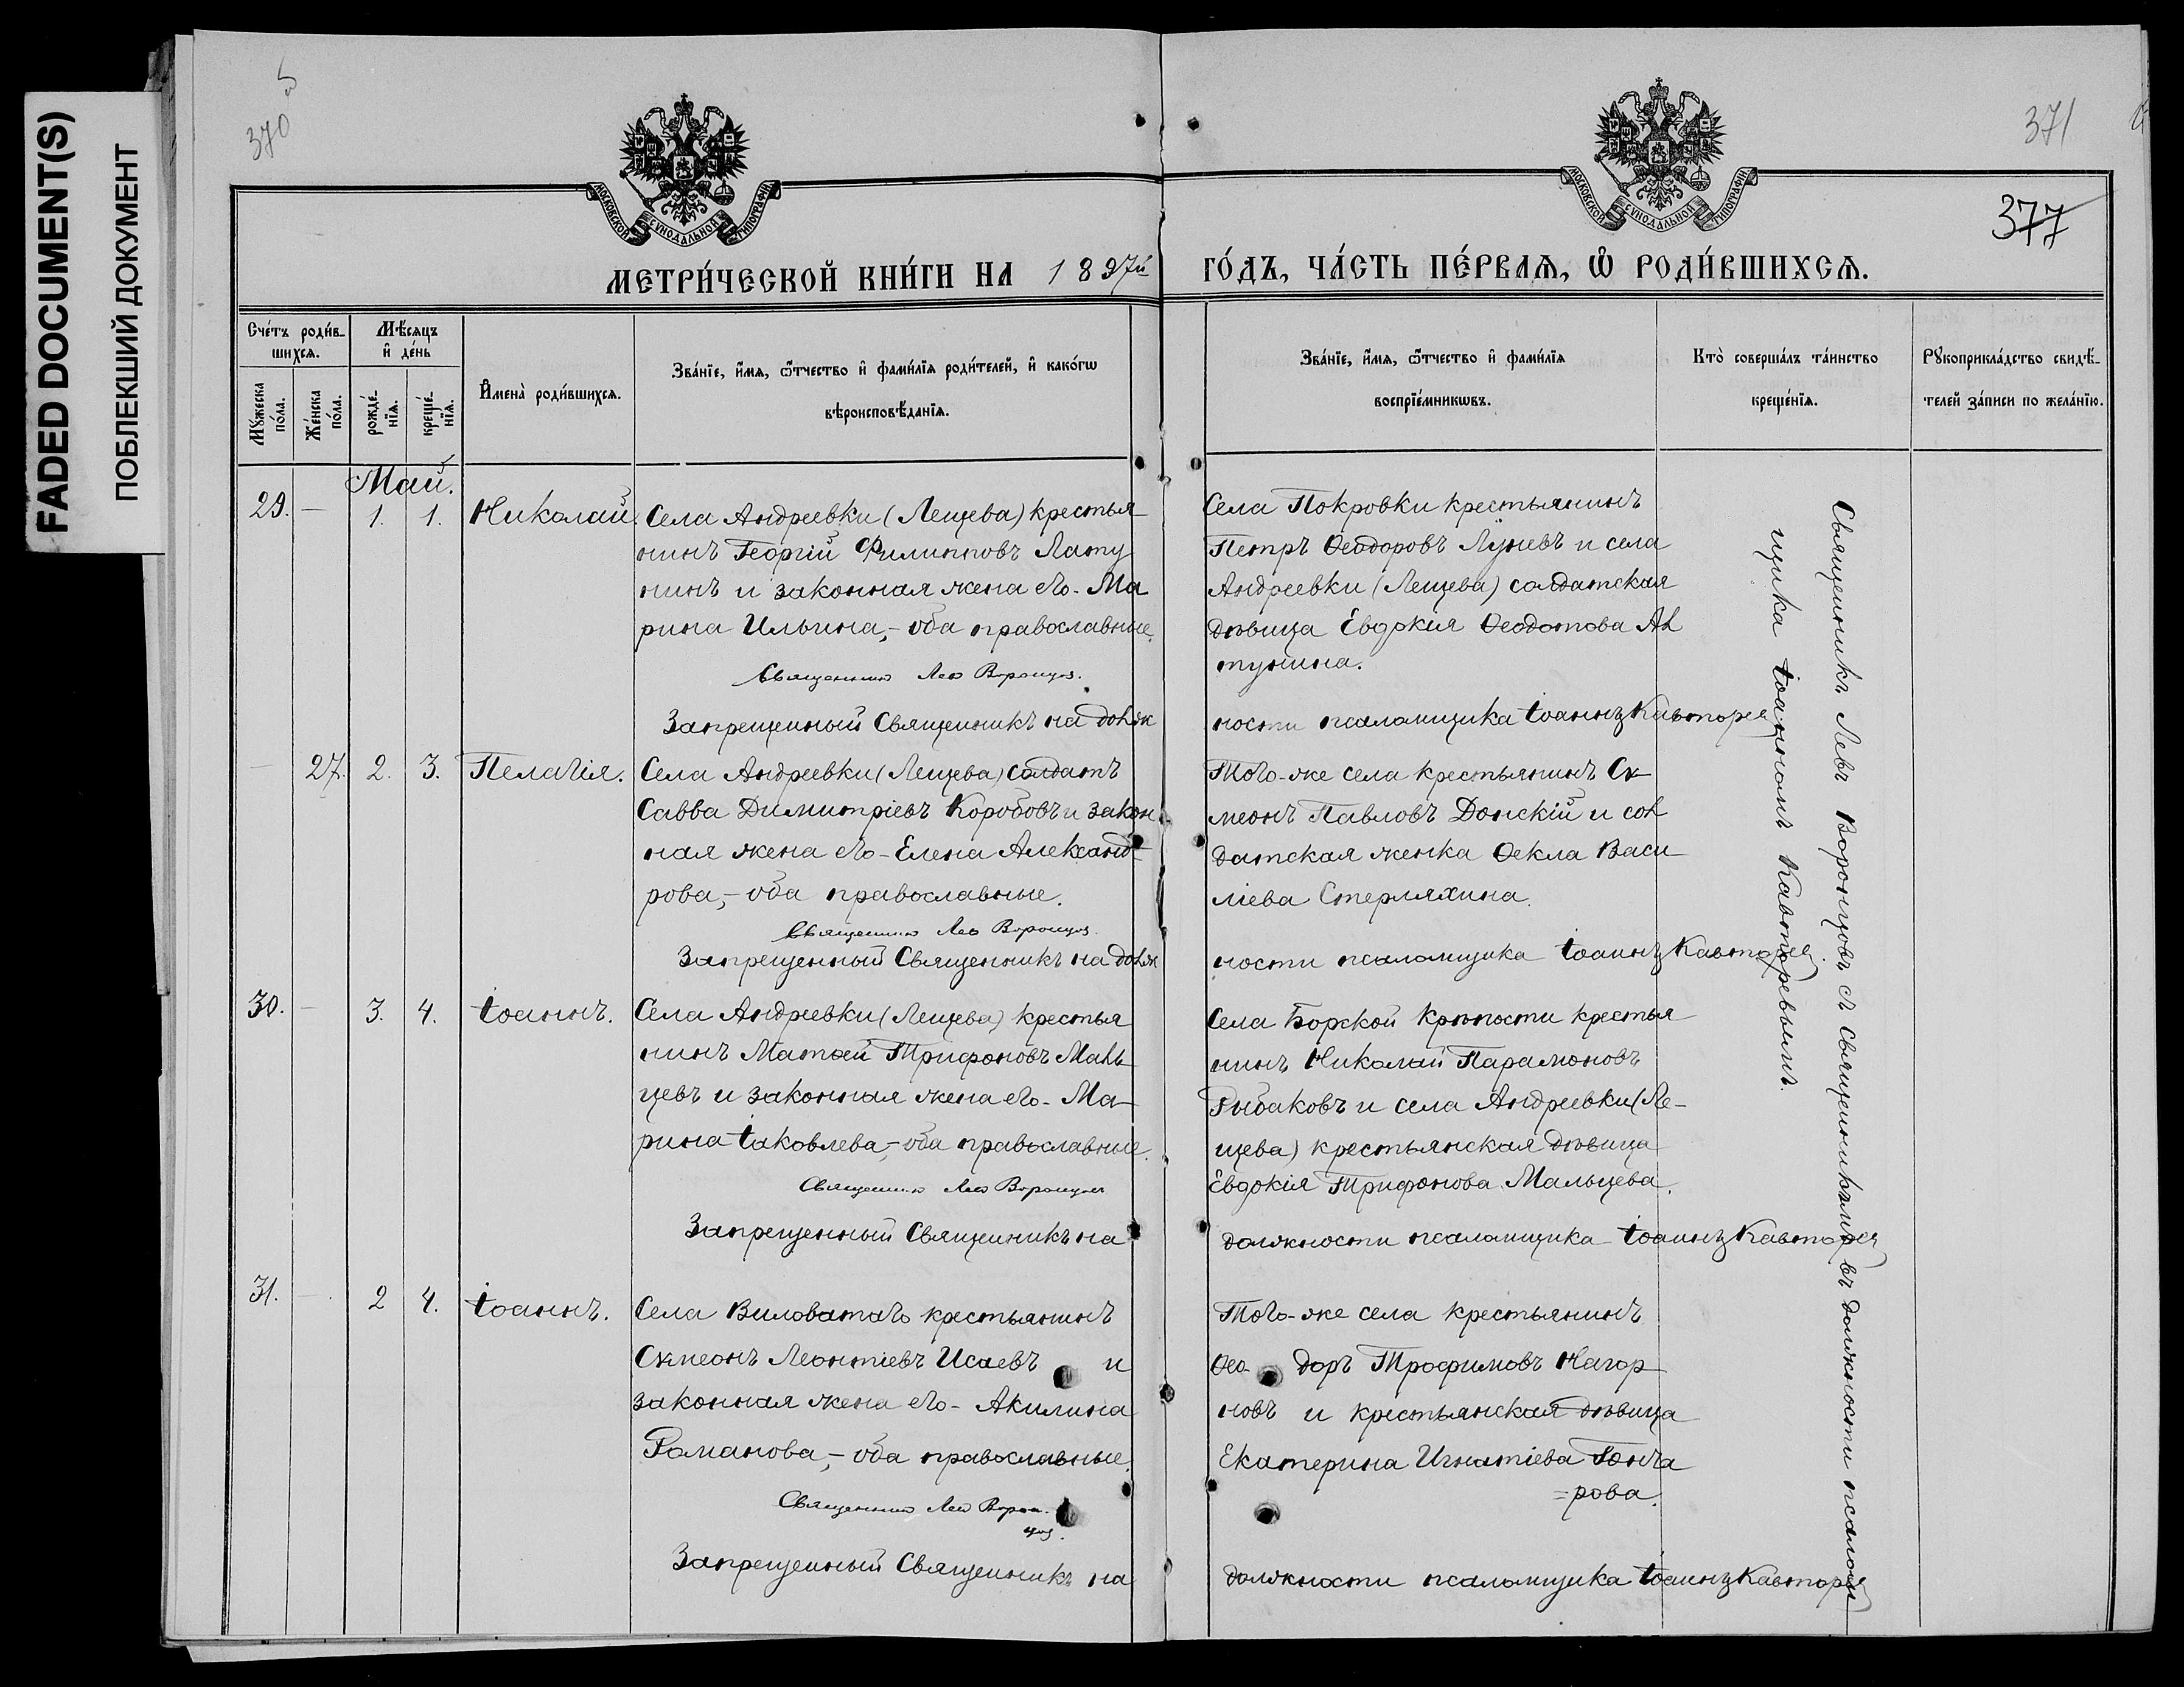 FADED DOCUMENT(S)
ПОБЛЕКШИЙ ДОКУМЕНТ
370
371
377
МОСКОВСКОЙ СѴНОДАЛЬНОЙ ТИПОГРАФІИ
МОСКОВСКОЙ СѴНОДАЛЬНОЙ ТИПОГРАФІИ
МЕТРИ́ЧЕСКОЙ КНИ́ГИ НА 1897й ГО́ДЪ, ЧА́СТЬ ПЕ́РВАѦ, Ѽ РОДИ́ВШИХСѦ.
Сче́тъ роди́в-
шихсѧ.
Мꙋжеска по́ла.
Же́нска по́ла.
Мѣ́сѧцъ
и҆ де́нь
рожде́-
нїѧ.
креще́-
нїѧ.
И҆мена̀ роди́вшихсѧ.
Зва́нїе, и҆́мѧ, ѻ҆́тчество и҆ фами́лїѧ роди́телей, и҆ како́гѡ
вѣроисповѣ́данїѧ.
Зва́нїе, и҆́мѧ, ѻ҆́тчество и҆ фами́лїѧ
воспрїе́мникѡвъ.
Кто̀ соверша́лъ та́инство
креще́нїѧ.
Рꙋкоприкла́дство свидѣ́-
телей за́писи по жела́нїю.
Май.
29. — 1. 1. Николай. Села Андреевки (Лещева) крестья
нинъ Георгій Филипповъ Лату
нинъ и законная жена его - Ма
рина Ильина, - оба православные.
Священникъ Лев Воронцов.
Запрещенный Священникъ на долж
Села Покровки крестьянинъ
Петръ Ѳеодоровъ Луневъ и села
Андреевки (Лещева) солдатская
дѣвица Евдокія Ѳеодотова Ла
тунина.
ности псаломщика Іоаннъ Кавторев
— 27. 2. 3. Пелагія. Села Андреевки (Лещева) солдатъ
Савва Димитріевъ Коробовъ и закон
ная жена его - Елена Александ-
рова, - оба православные.
Священникъ Лев Воронцов.
Запрещенный Священникъ на долж
Того-же села крестьянинъ Си
меонъ Павловъ Донскій и сол
датская женка Ѳекла Васи
ліева Стерляхина.
ности псаломщика Іоаннъ Кавторев.
30. — 3. 4. Іоаннъ. Села Андреевки (Лещева) крестья
нинъ Матѳей Трифоновъ Маль
цевъ и законная жена его - Ма-
рина Іаковлева, - оба православные.
Священникъ Лев Воронцов
Запрещенный Священникъ на
Села Борской Крѣпости крестья
нинъ Николай Парамоновъ
Рыбаковъ и села Андреевки (Ле-
щева) крестьянская дѣвица
Евдокія Трифонова Мальцева.
должности псаломщика Іоаннъ Кавторев
31. — 2 4. Іоаннъ. Села Виловатаго крестьянинъ
Симеонъ Леонтіевъ Исаевъ и
законная жена его - Акилина
Романова, - оба православные.
Священникъ Лев Ворон-
цов.
Запрещенный Священникъ на
Того-же села крестьянинъ
Ѳео доръ Трофимовъ Нагор
новъ и крестьянская дѣвица
Екатерина Игнатіева Гонча
=рова.
должности псаломщика Іоаннъ Кавторев
Священникъ Левъ Воронцовъ съ священникомъ въ должности псалом
щика Іоанномъ Кавторевымъ.